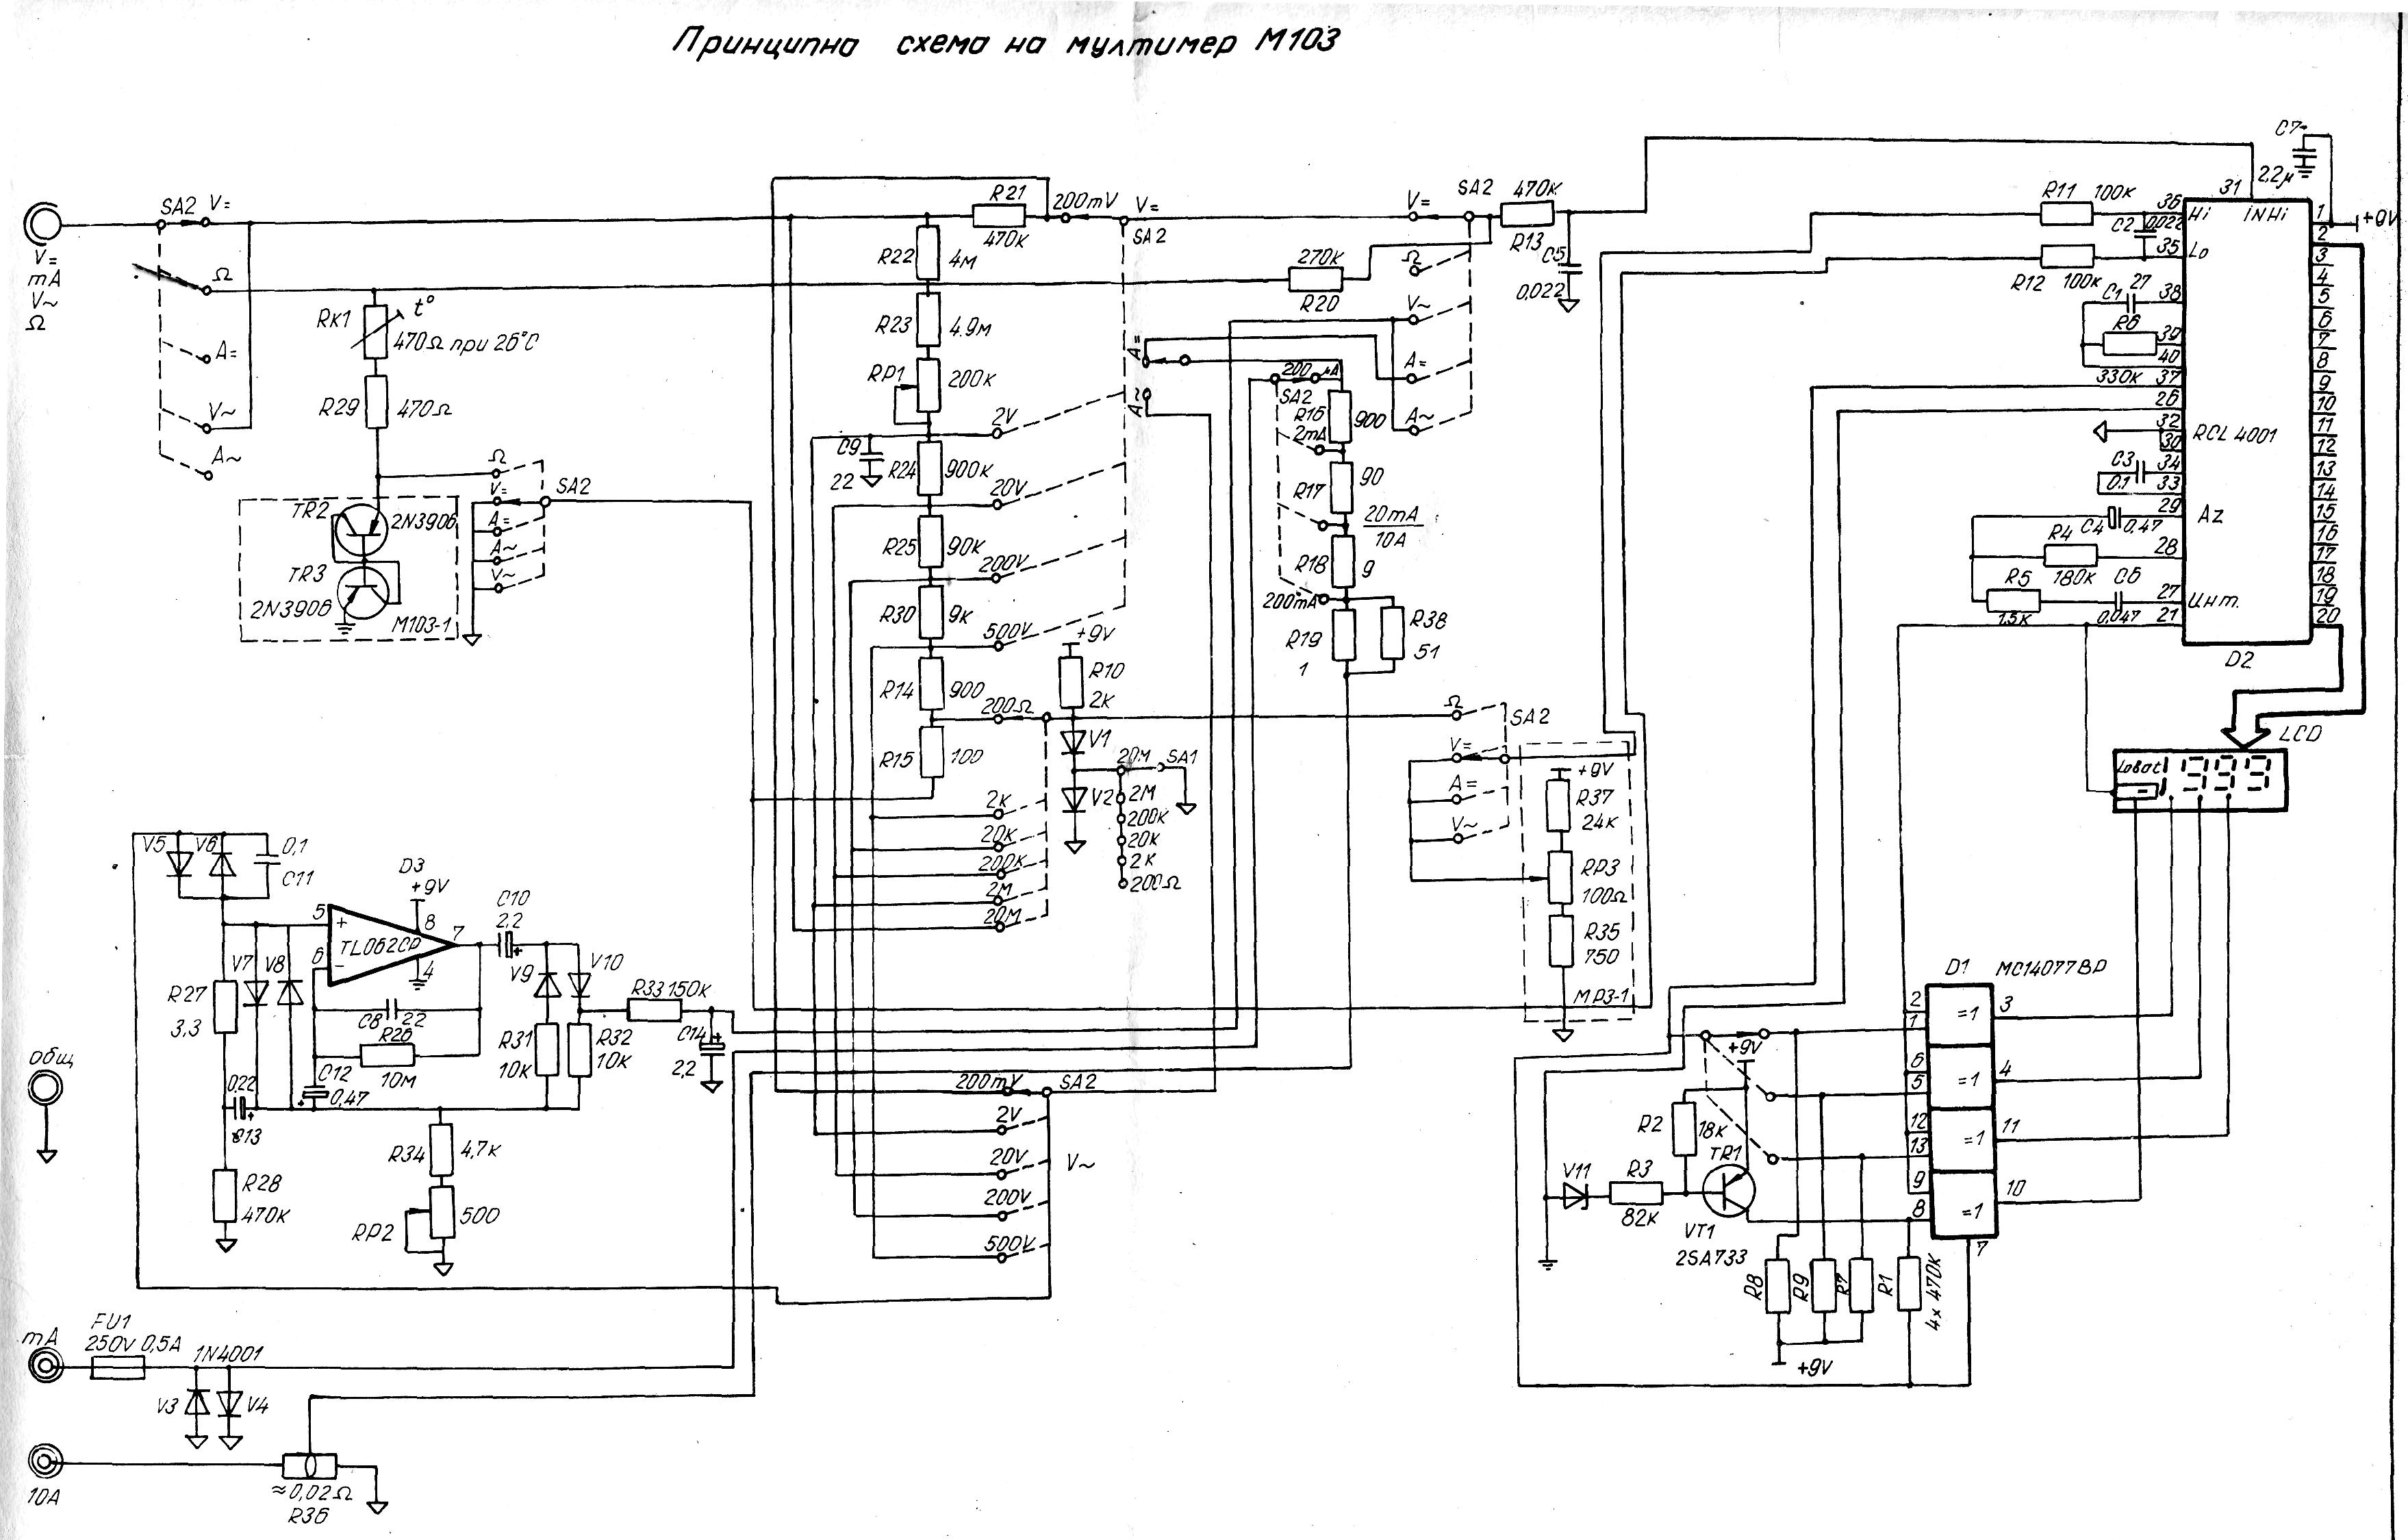 Принципна схема на мултимер М103
V=
mA
V~
Ω
SA2 V=
Ω
A=
V~
A~
RK1
t°
470Ω при 26°С
R29 470Ω
TR2 2N3906
TR3
2N3906
M103-1
Ω
V=
A=
A~
V~
SA2
R21
470K
200mV
V=
SA2
R22 4M
R23 4.9M
RP1 200K
2V
C9
22
R24 900K
20V
R25 90K
200V
R30 9K
500V
R14 900
200Ω
R15 100
2K
20K
200K
2M
20M
+9V
R10
2K
V1
V2
20M SA1
2M
200K
20K
2K
200Ω
A=
A~
270K
R20
200 μA
SA2
R16 900
2mA
R17 90
20mA
10A
R18 9
200mA
R19
1
R38
51
V=
SA2
Ω
V~
A=
A~
470K
R13
C5
0,022
Ω
SA2
V=
A=
V~
+9V
R37
24K
RP3
100Ω
R35
750
MP3-1
C7
2,2μ
+9V
R11 100K
C2 0,022
R12 100K
C1 27
R6
330K
C3
0.1
C4 0,47
R4
180K
R5
1.5K
C6
0,047
36
35
38
39
40
37
26
32
30
34
33
29
28
27
21
31
Hi INHi
Lo
RCL 4001
Az
Инт.
1
2
3
4
5
6
7
8
9
10
11
12
13
14
15
16
17
18
19
20
D2
LCD
Lobat
1999
V5
V6
0,1
C11
D3
+9V
5
8
7
6
4
TL062CP
C10
2,2
V7
V8
V9
V10
R27
3,3
C8 22
R26
10M
C12
0,47
0,22
C13
R31
10K
R32
10K
R33 150K
C14
2,2
R28
470K
R34 4,7K
RP2 500
общ
200mV SA2
2V
20V
200V
500V
V~
D1 MC14077BP
2
1
6
5
12
13
9
8
7
=1
=1
=1
=1
3
4
11
10
+9V
R2
18K
TR1
V11
R3
82K
VT1
2SA733
R8
R9
R7
R1
4x 470K
+9V
mA
FU1
250V 0,5A
1N4001
V3
V4
10A
≈0,02Ω
R36